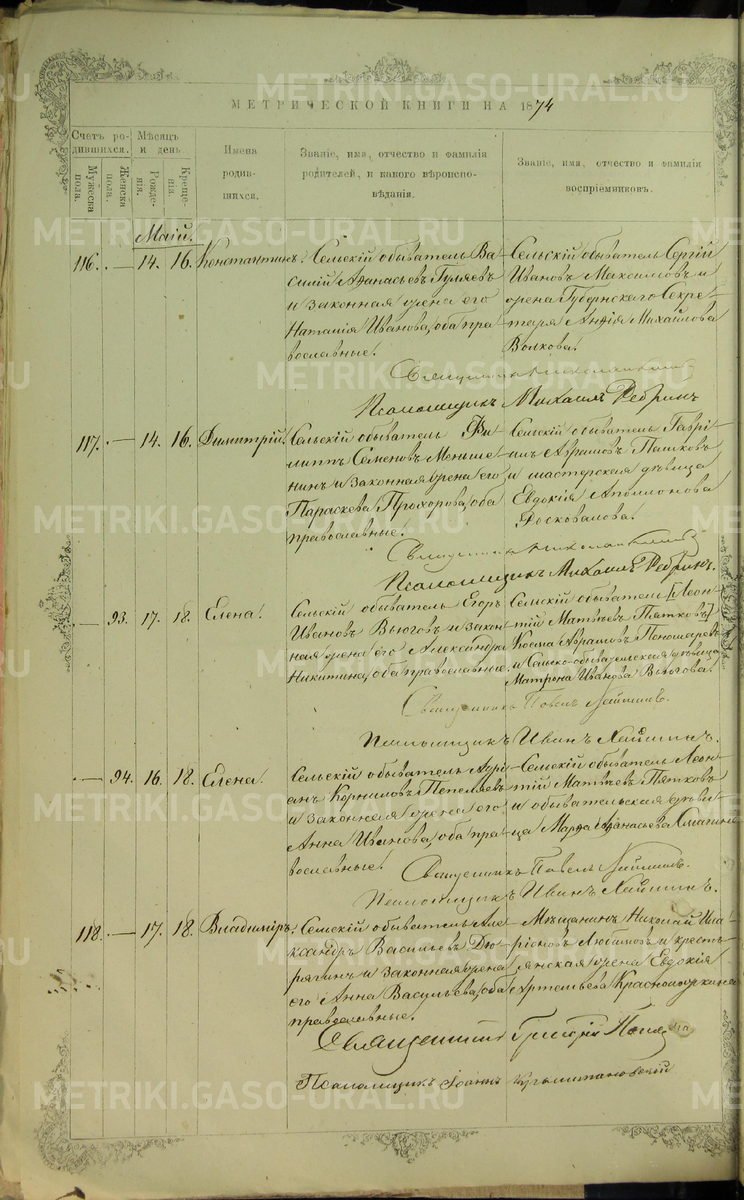 METRIKI.GASO-URAL.RU
МЕТРИЧЕСКОЙ КНИГИ НА 1874
Счетъ ро-
дившихся.
Мужеска
пола.
Женска
пола.
Мѣсяцъ
и день.
Рожде-
нія.
Креще-
нія.
Имена
родив-
шихся.
Званіе, имя, отчество и фамилія
родителей, и какого вѣроиспо-
вѣданія.
Званіе, имя, отчество и фамилія
воспріемниковъ.
Маій.
116. — 14. 16. Константинъ.
Сельскій обыватель Ва-
силій Аѳанасьевъ Гуляевъ
и законная жена его
Наталія Иванова, оба пра
вославные.
Сельскій обыватель Сергій
Ивановъ Максимовъ и
жена Губернского Секре-
таря Михайлова
Волкова.
Священникъ
Псаломщикъ Михаилъ Ребринъ
117. — 14. 16. Димитрій.
Сельскій обыватель Фи-
липпъ Семеновъ Меньше
нинъ и законная жена его
Параскева Прохорова, оба
православные.
Сельскій обыватель Гаврі-
илъ Абрамовъ Пашковъ
и мастерская дѣвица
Евдокія Аполлонова
Священникъ
Псаломщикъ Михаилъ Ребринъ.
— 93. 17. 18. Елена.
Сельскій обыватель Егоръ
Ивановъ Вьюговъ и закон
ная жена его Александра
Никитина, оба православные.
Сельскій обыватель [Леон-
тій Матвѣевъ Пятковъ]
Косма Абрамовъ Пономаревъ
и Сельско-обывательская дѣвица
Матрона Иванова Вьюгова.
Священникъ Павелъ
Псаломщикъ Иванъ
— 94. 16. 18. Елена.
Сельскій обыватель
Корниловъ Пепеляевъ
и законная жена его
Анна Иванова, оба пра
вославные.
Сельскій обыватель Леон
тій Матвѣевъ Пятковъ
и обывательская дѣви
ца Марѳа Аѳанасьева
Священникъ Павелъ
Псаломщикъ Иванъ
118. — 17. 18. Владиміръ.
Сельскій обыватель Але
ксандръ Васильевъ Дю
рягинъ и законная жена
его Анна Васильева, оба
православные.
Мѣщанинъ Николай
Любимовъ и кресть
янская жена Евдокія
Артемьева
Священникъ Григорій
Псаломщикъ Іоаннъ